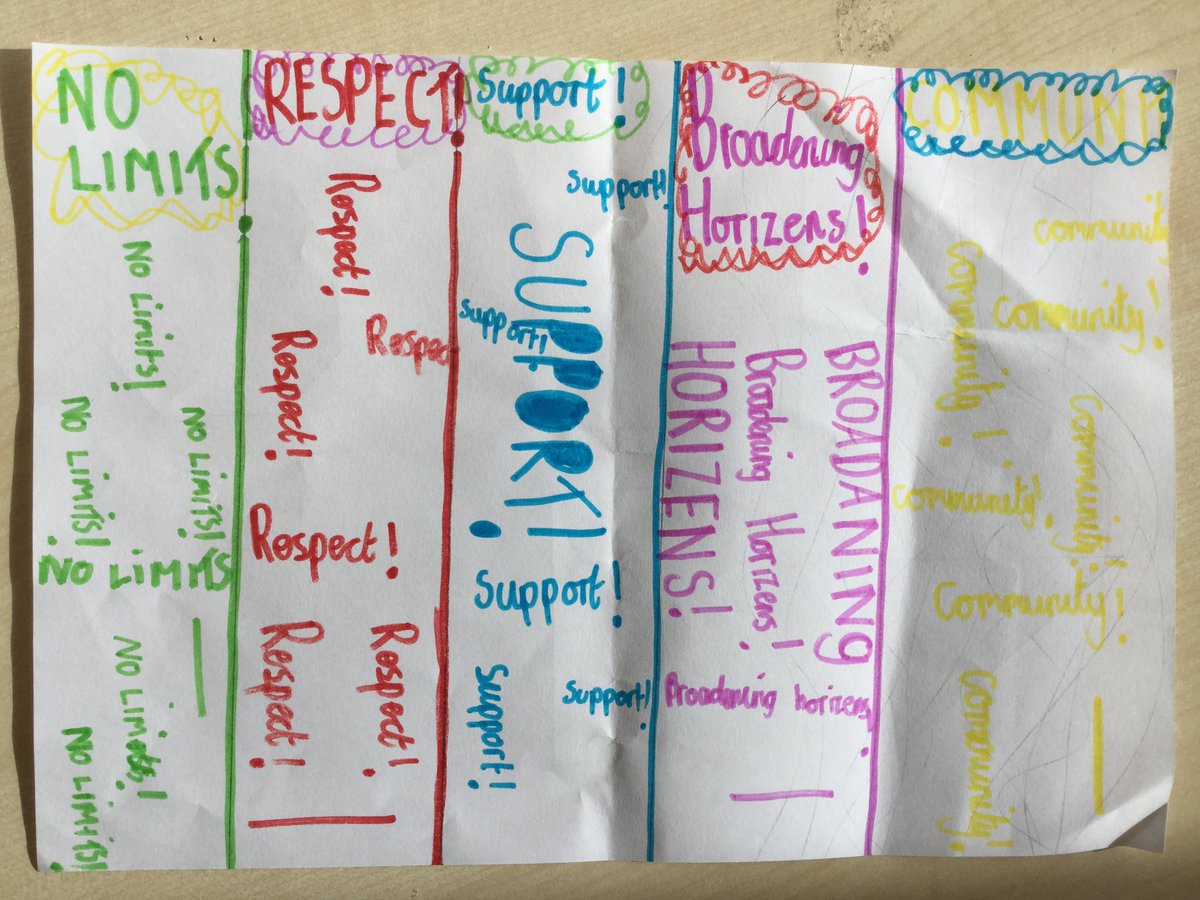 NO
LIMITS
No Limits!
No Limits!
No Limits!
NO LIMITS
No Limits!
No Limits!
RESPECT!
Respect!
Respec
Respect!
Respect!
Respect!
Respect!
Support!
Support!
SUPPORT!
Support!
Support!
Support!
Support!
Broadening
Horizens!
BROADANING
HORIZENS!
Broadening Horizens!
Broadening horizens
COMMUNI
community
Community!
Community!
Community!
Community!
Community!
Community!